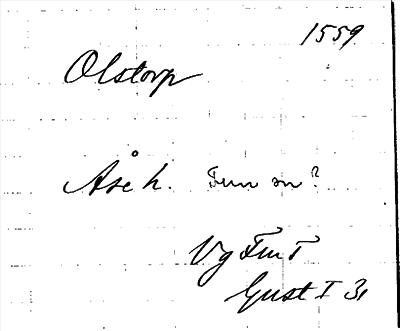 1559
Olstorp
Åse h. Tun sn?
Vg Tun T
Gust I 31